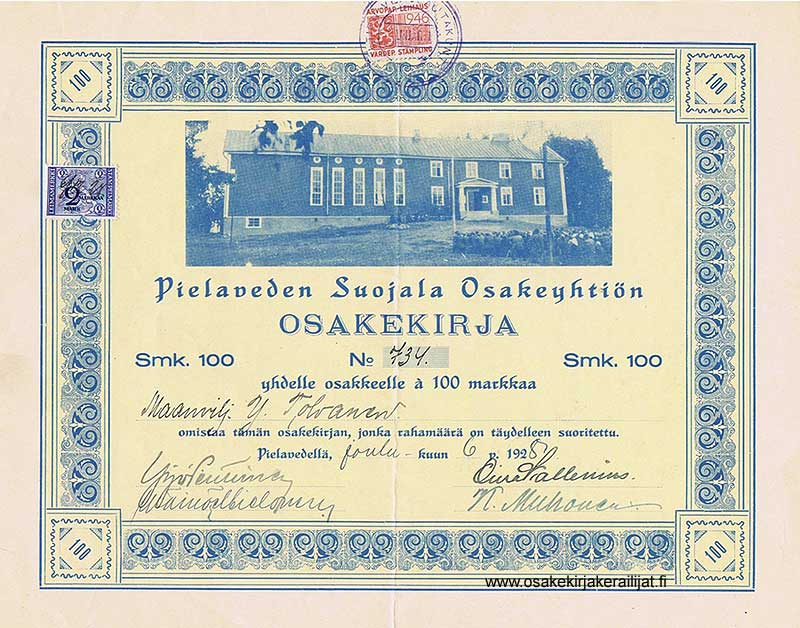 ARVOPAP. LEIMAUS
1946
VÄRDEP. STÄMPLING
100
100
LEIMAMERKKI
2
Pielaveden Suojala Osakeyhtiön
OSAKEKIRJA
Smk. 100 No 734. Smk. 100
yhdelle osakkeelle à 100 markkaa
Maanvilj. Y. Tolvanen
omistaa tämän osakekirjan, jonka rahamäärä on täydelleen suoritettu.
Pielavedellä, joulu- kuun 6 p. 192
K. Muhonen
100
100
www.osakekirjakerailijat.fi